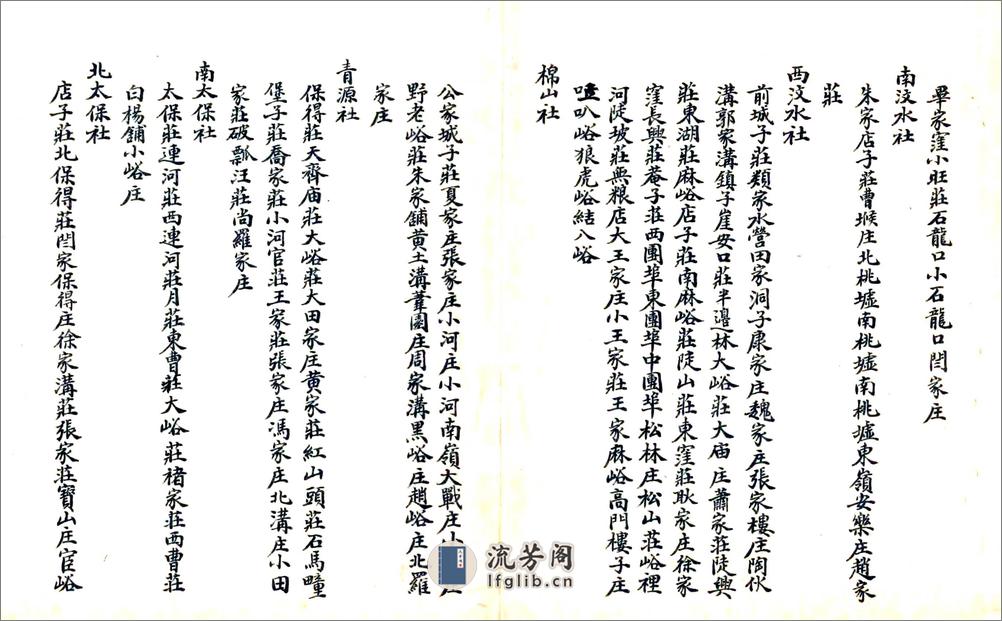 畢家窪小旺莊石龍口小石龍口閆家庄
南汶水社
朱家店子莊曹堠庄北桃墟南桃墟南桃墟東嶺安樂庄趙家
莊
西汶水社
前城子莊類家水營田家洞子康家庄魏家庄張家樓庄陶伙
溝郭家溝鎮子崖安口莊半邊林大峪莊大庙庄蕭家莊陡興
莊東湖莊麻峪店子莊南麻峪莊陡山莊東窪莊耿家庄徐家
窪長興莊菴子莊西團埠東團埠中團埠松林庄松山莊峪裡
河陡坡莊無粮店大王家庄小王家莊王家麻峪高門樓子庄
叭峪狼虎峪結八峪
棉山社
公家城子莊夏家庄張家庄小河庄小河南嶺大戰庄小庄
野老峪莊朱家舖黄土溝葦園庄周家溝黑峪庄趙峪庄北羅
家庄
青源社
保得莊天齊庙莊大峪莊大田家庄黄家莊紅山頭莊石馬疃
堡子莊喬家莊小河官莊王家莊張家庄馮家庄北溝庄小田
家莊破瓢汪莊尚羅家庄
南太保社
太保莊連河莊西連河莊月莊東曹莊大峪莊褚家莊西曹莊
白楊舖小峪庄
北太保社
店子莊北保得莊閆家保得庄徐家溝莊張家莊寶山庄官峪
流芳阁
lfglib.cn